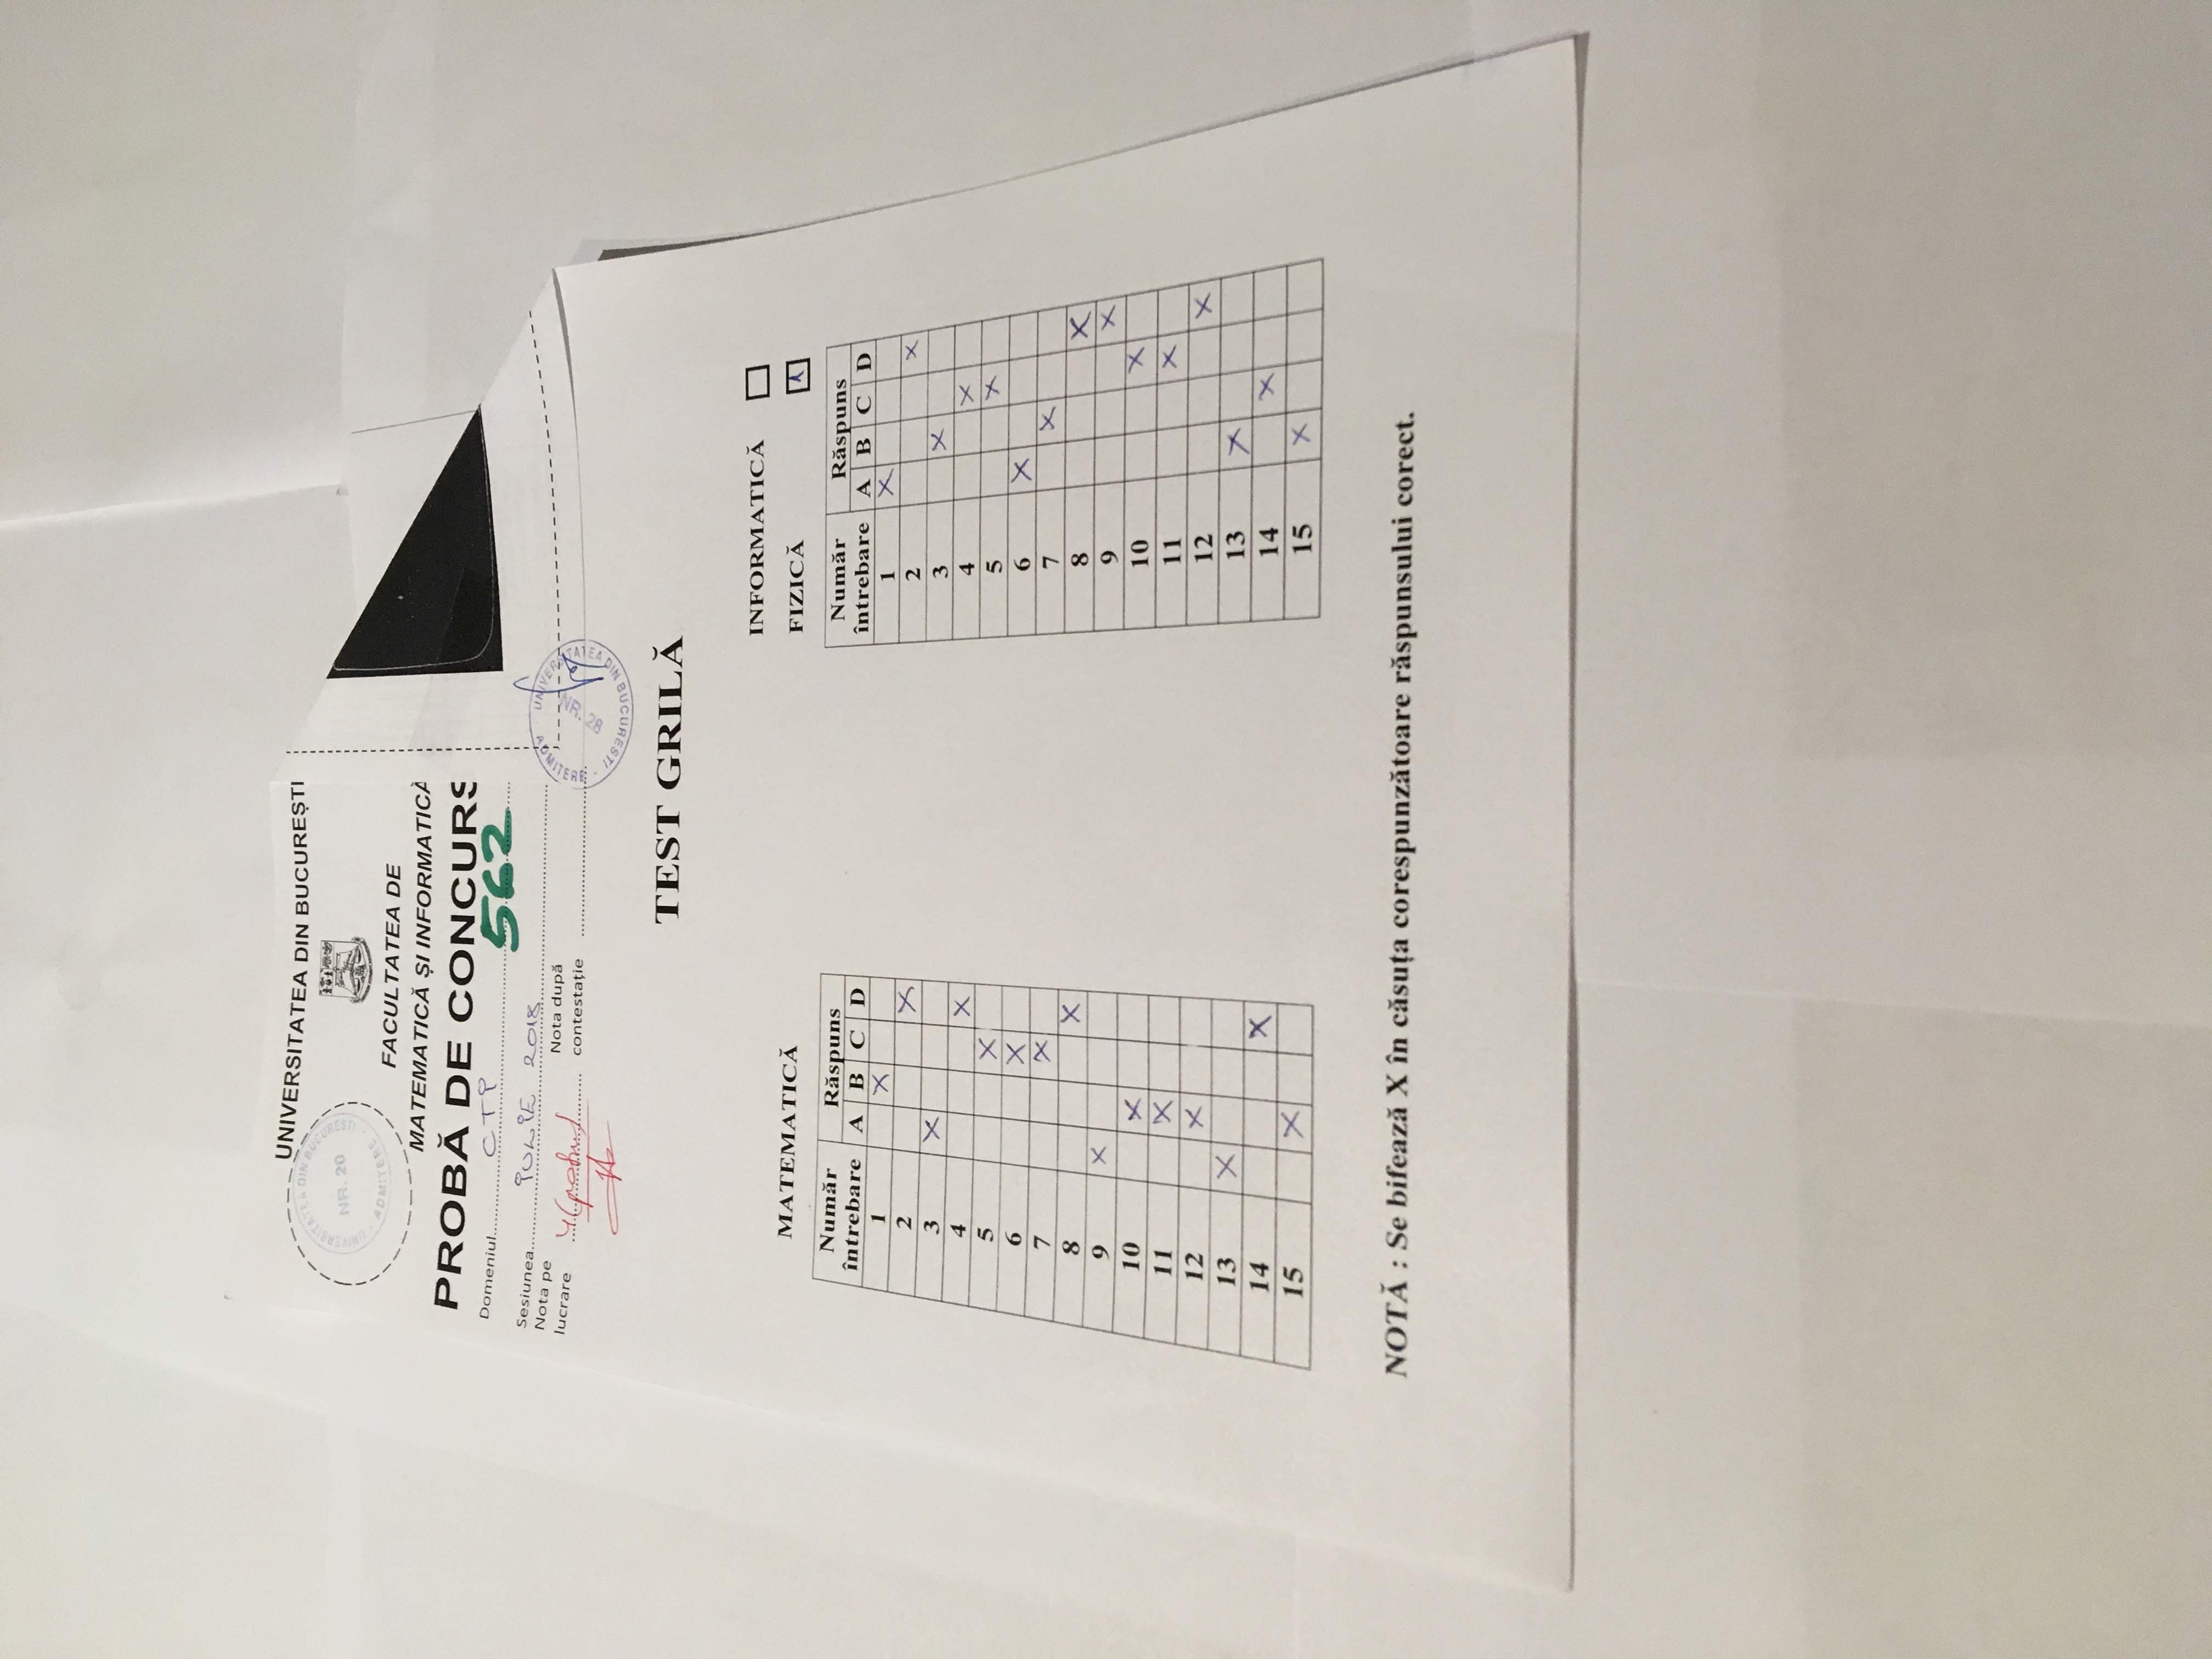 UNIVERSITATEA DIN BUCUREȘTI
UNIVERSITATEA DIN BUCURESTI
NR. 20
ADMITERE
FACULTATEA DE
MATEMATICĂ ȘI INFORMATICĂ
PROBĂ DE CONCURS
Domeniul CTI 562
Sesiunea IULIE 2018
Nota pe
lucrare 4 (patru)
Nota după
contestație
UNIVERSITATEA DIN BUCURESTI
NR. 28
ADMITERE
TEST GRILĂ
INFORMATICĂ
FIZICĂ 1
MATEMATICĂ
Număr Răspuns
întrebare A B C D
1 X
2 X
3 X
4 X
5 X
6 X
7 X
8 X
9 X
10 X
11 X
12 X
13 X
14 X
15 X
Număr Răspuns
întrebare A B C D
1 X
2 X
3 X
4 X
5 X
6 X
7 X
8 X
9 X
10 X
11 X
12 X
13 X
14 X
15 X
NOTĂ : Se bifează X în căsuța corespunzătoare răspunsului corect.